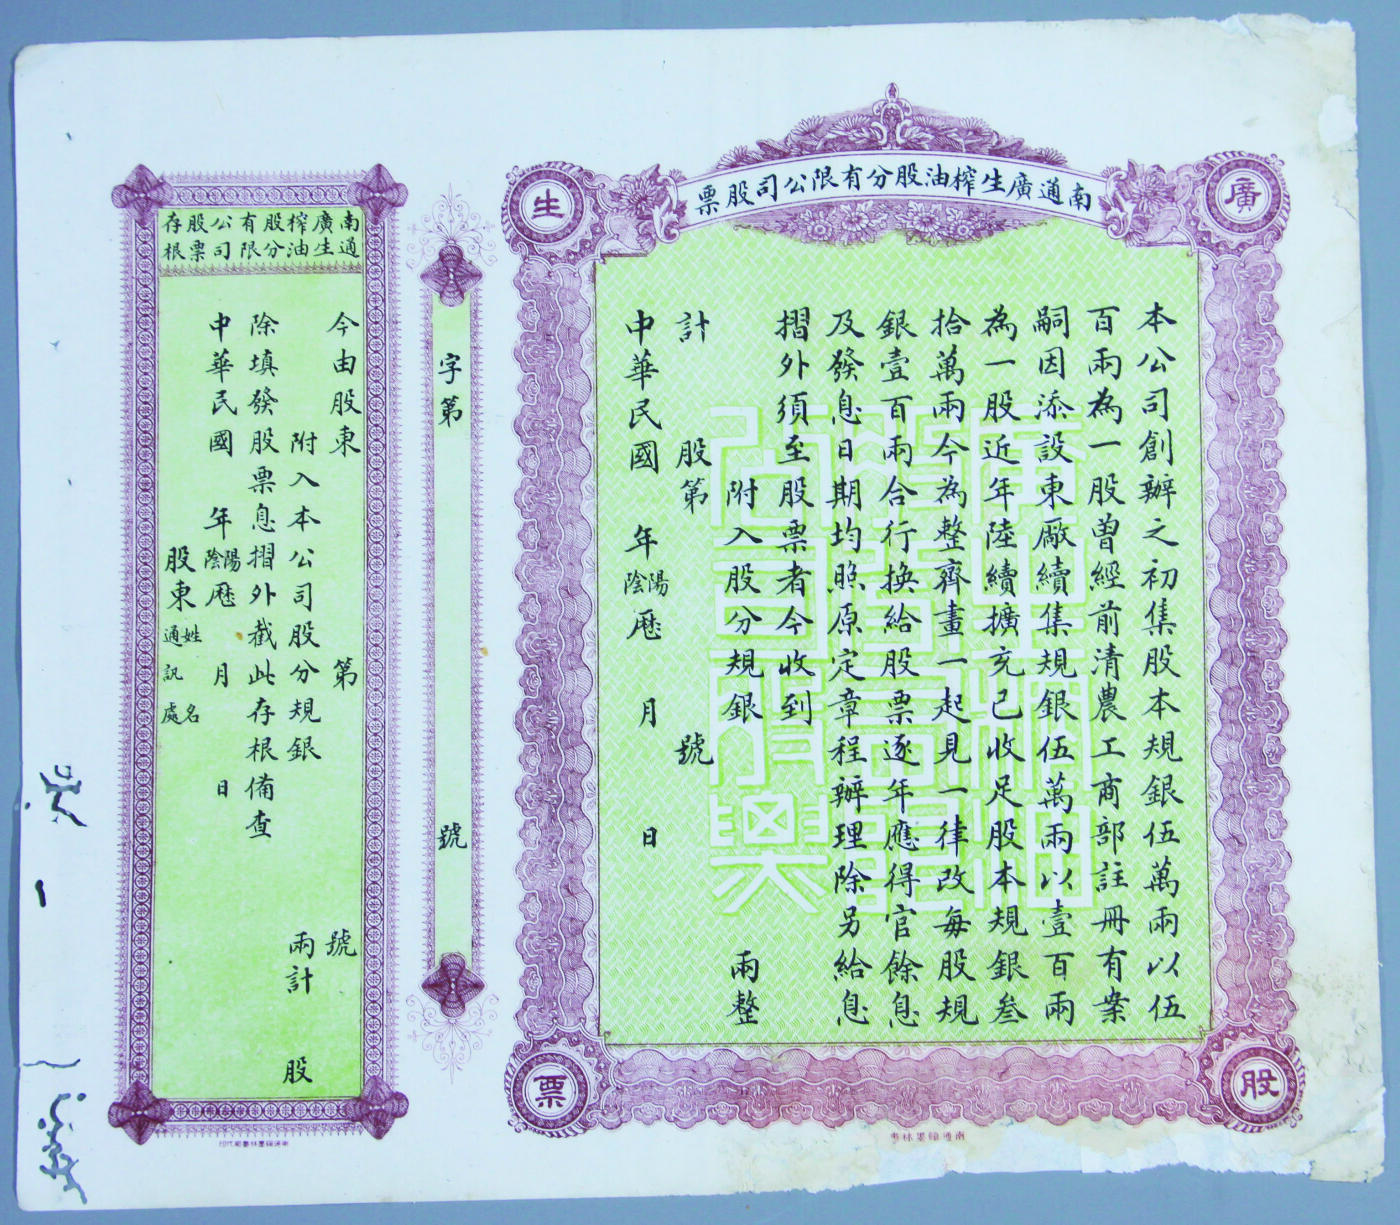 南通廣生榨油股分有限公司股票
廣
生
股
票
本公司創辦之初集股本規銀伍萬兩以伍
百兩為一股曾經前清農工商部註冊有案
嗣因添設東厰續集規銀伍萬兩以壹百兩
為一股近年陸續擴充已收足股本規銀叁
拾萬兩今為整齊畫一起見一律改每股規
銀壹百兩合行換給股票逐年應得官餘息
及發息日期均照原定章程辦理除另給息
摺外須至股票者今收到
附入股分規銀 兩整
計 股第 號
中華民國 年陽陰厯 月 日
南通翰墨林書
字第 號
南通廣生榨油股分有限公司股票存根
今由股東 第 號
附入本公司股分規銀 兩計 股
除填發股票息摺外截此存根備查
中華民國 年陽陰厯 月 日
股東姓名通訊處
南通翰墨林書局代印